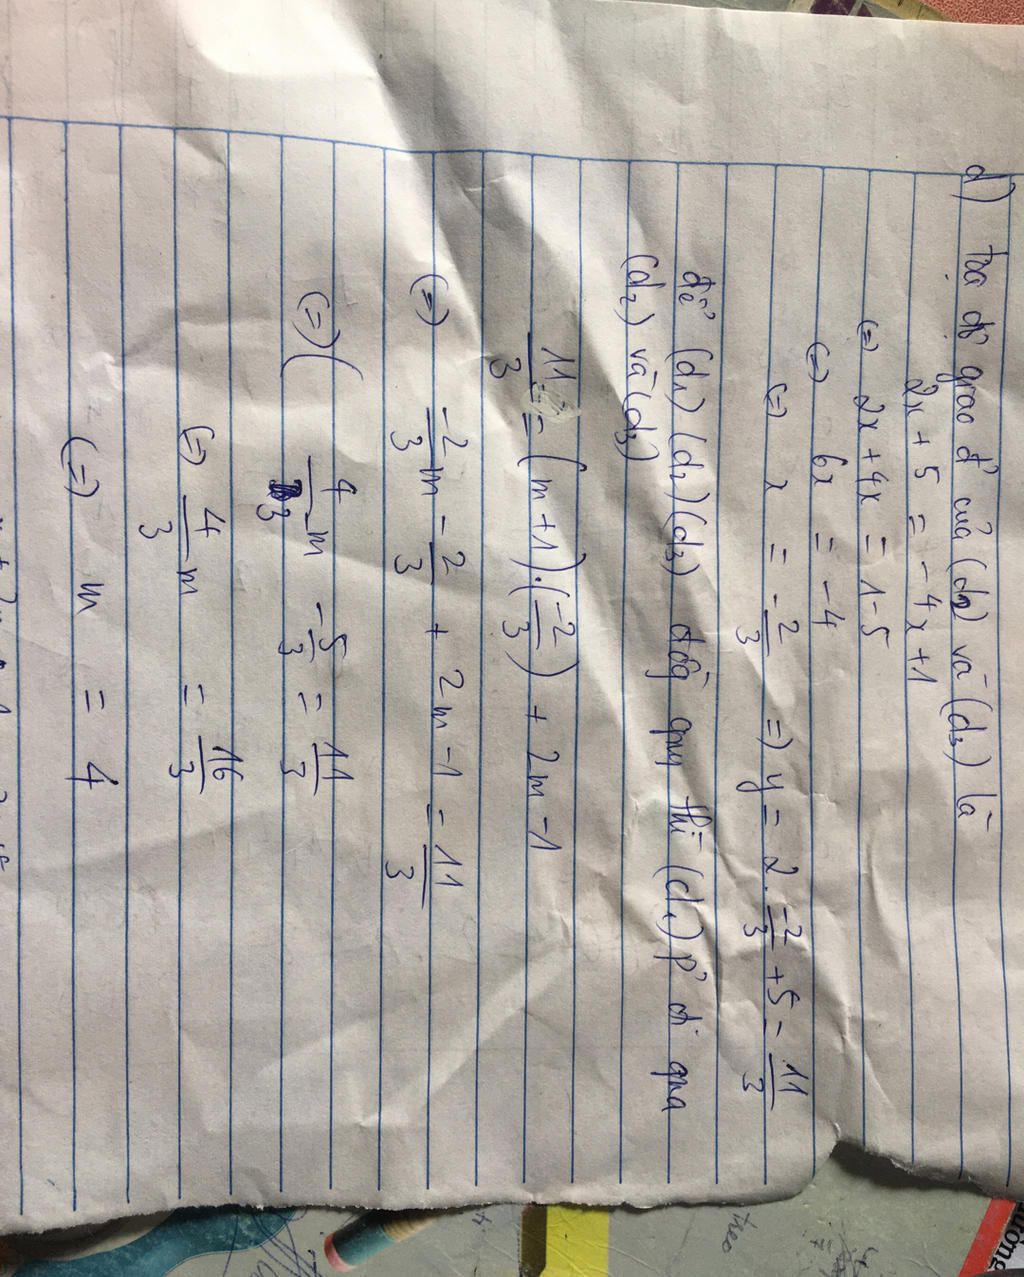 d) toạ độ giao đ' của (d2) và (d3) là
2x + 5 = -4x + 1
(=) 2x + 4x = 1 - 5
(=) 6x = -4
(=) x = -2/3 =) y = 2 . -2/3 + 5 = 11/3
để (d1) (d2) (d3) đồg quy thì (d1) p' đi qua
(d2) và (d3)
11/3 = (m+1).(-2/3) + 2m - 1
(=) -2/3 m - 2/3 + 2m - 1 = 11/3
(=) ( 4/3 m - 5/3 = 11/3
(=) 4/3 m = 16/3
(=) m = 4
treo